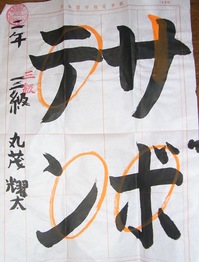 サボ
テン
三級
二年 三級 丸茂 耀太